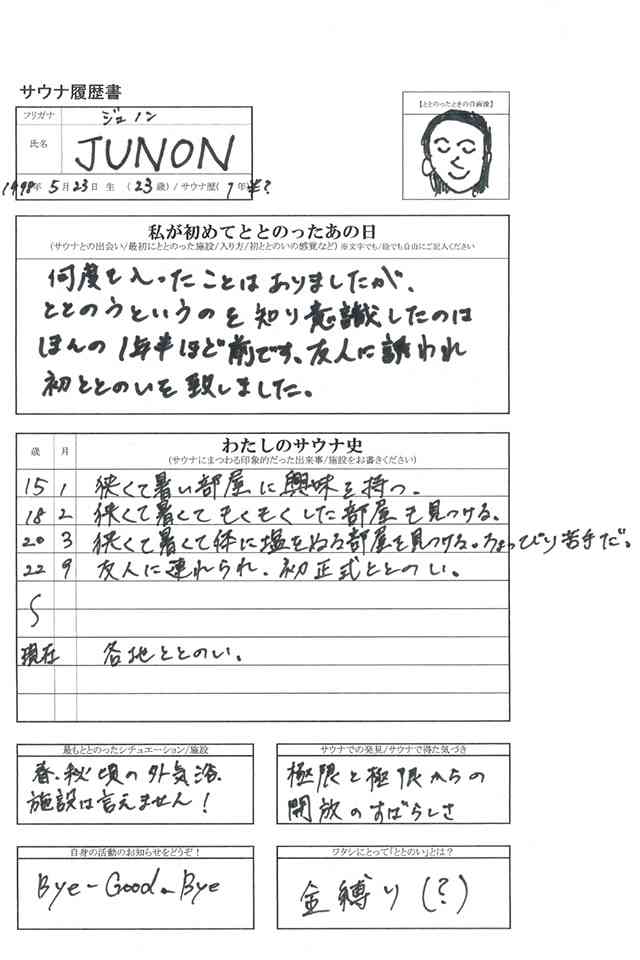 サウナ履歴書
フリガナ ジュノン
氏名 JUNON
1998年 5月23日 生 (23歳) / サウナ歴( 1年半?
【ととのったときの自画像】
私が初めてととのったあの日
(サウナとの出会い/最初にととのった施設/入り方/初ととのいの感覚など) ※文字でも/絵でも自由にご記入ください
何度も入ったことはありましたが、
ととのうというのを知り意識したのは
ほんの1年半ほど前です。友人に誘われ
初ととのいを致しました。
歳 月 わたしのサウナ史
(サウナにまつわる印象的だった出来事/施設をお書きください)
15 1 狭くて暑い部屋に興味を持つ。
18 2 狭くて暑くてもくもくした部屋も見つける。
20 3 狭くて暑くて体に塩をぬる部屋を見つける。ちょっぴり苦手だ。
22 9 友人に連れられ、初正式ととのい。
〜
現在 各地ととのい。
最もととのったシチュエーション/施設
春、秋頃の外気浴、
施設は言えません!
サウナでの発見/サウナで得た気づき
極限と極限からの
開放のすばらしさ
自身の活動のお知らせをどうぞ!
Bye-Good-Bye
ワタシにとって「ととのい」とは?
金縛り(?)